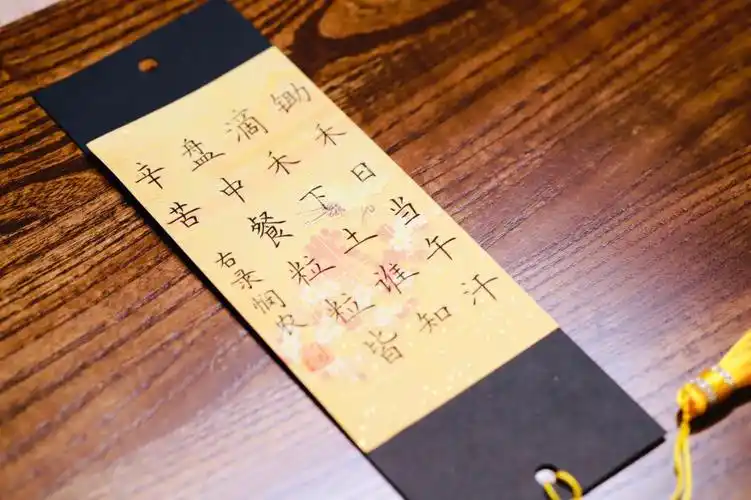 锄禾日当午汗
滴禾下土谁知
盘中餐粒粒皆
辛苦
右录悯农